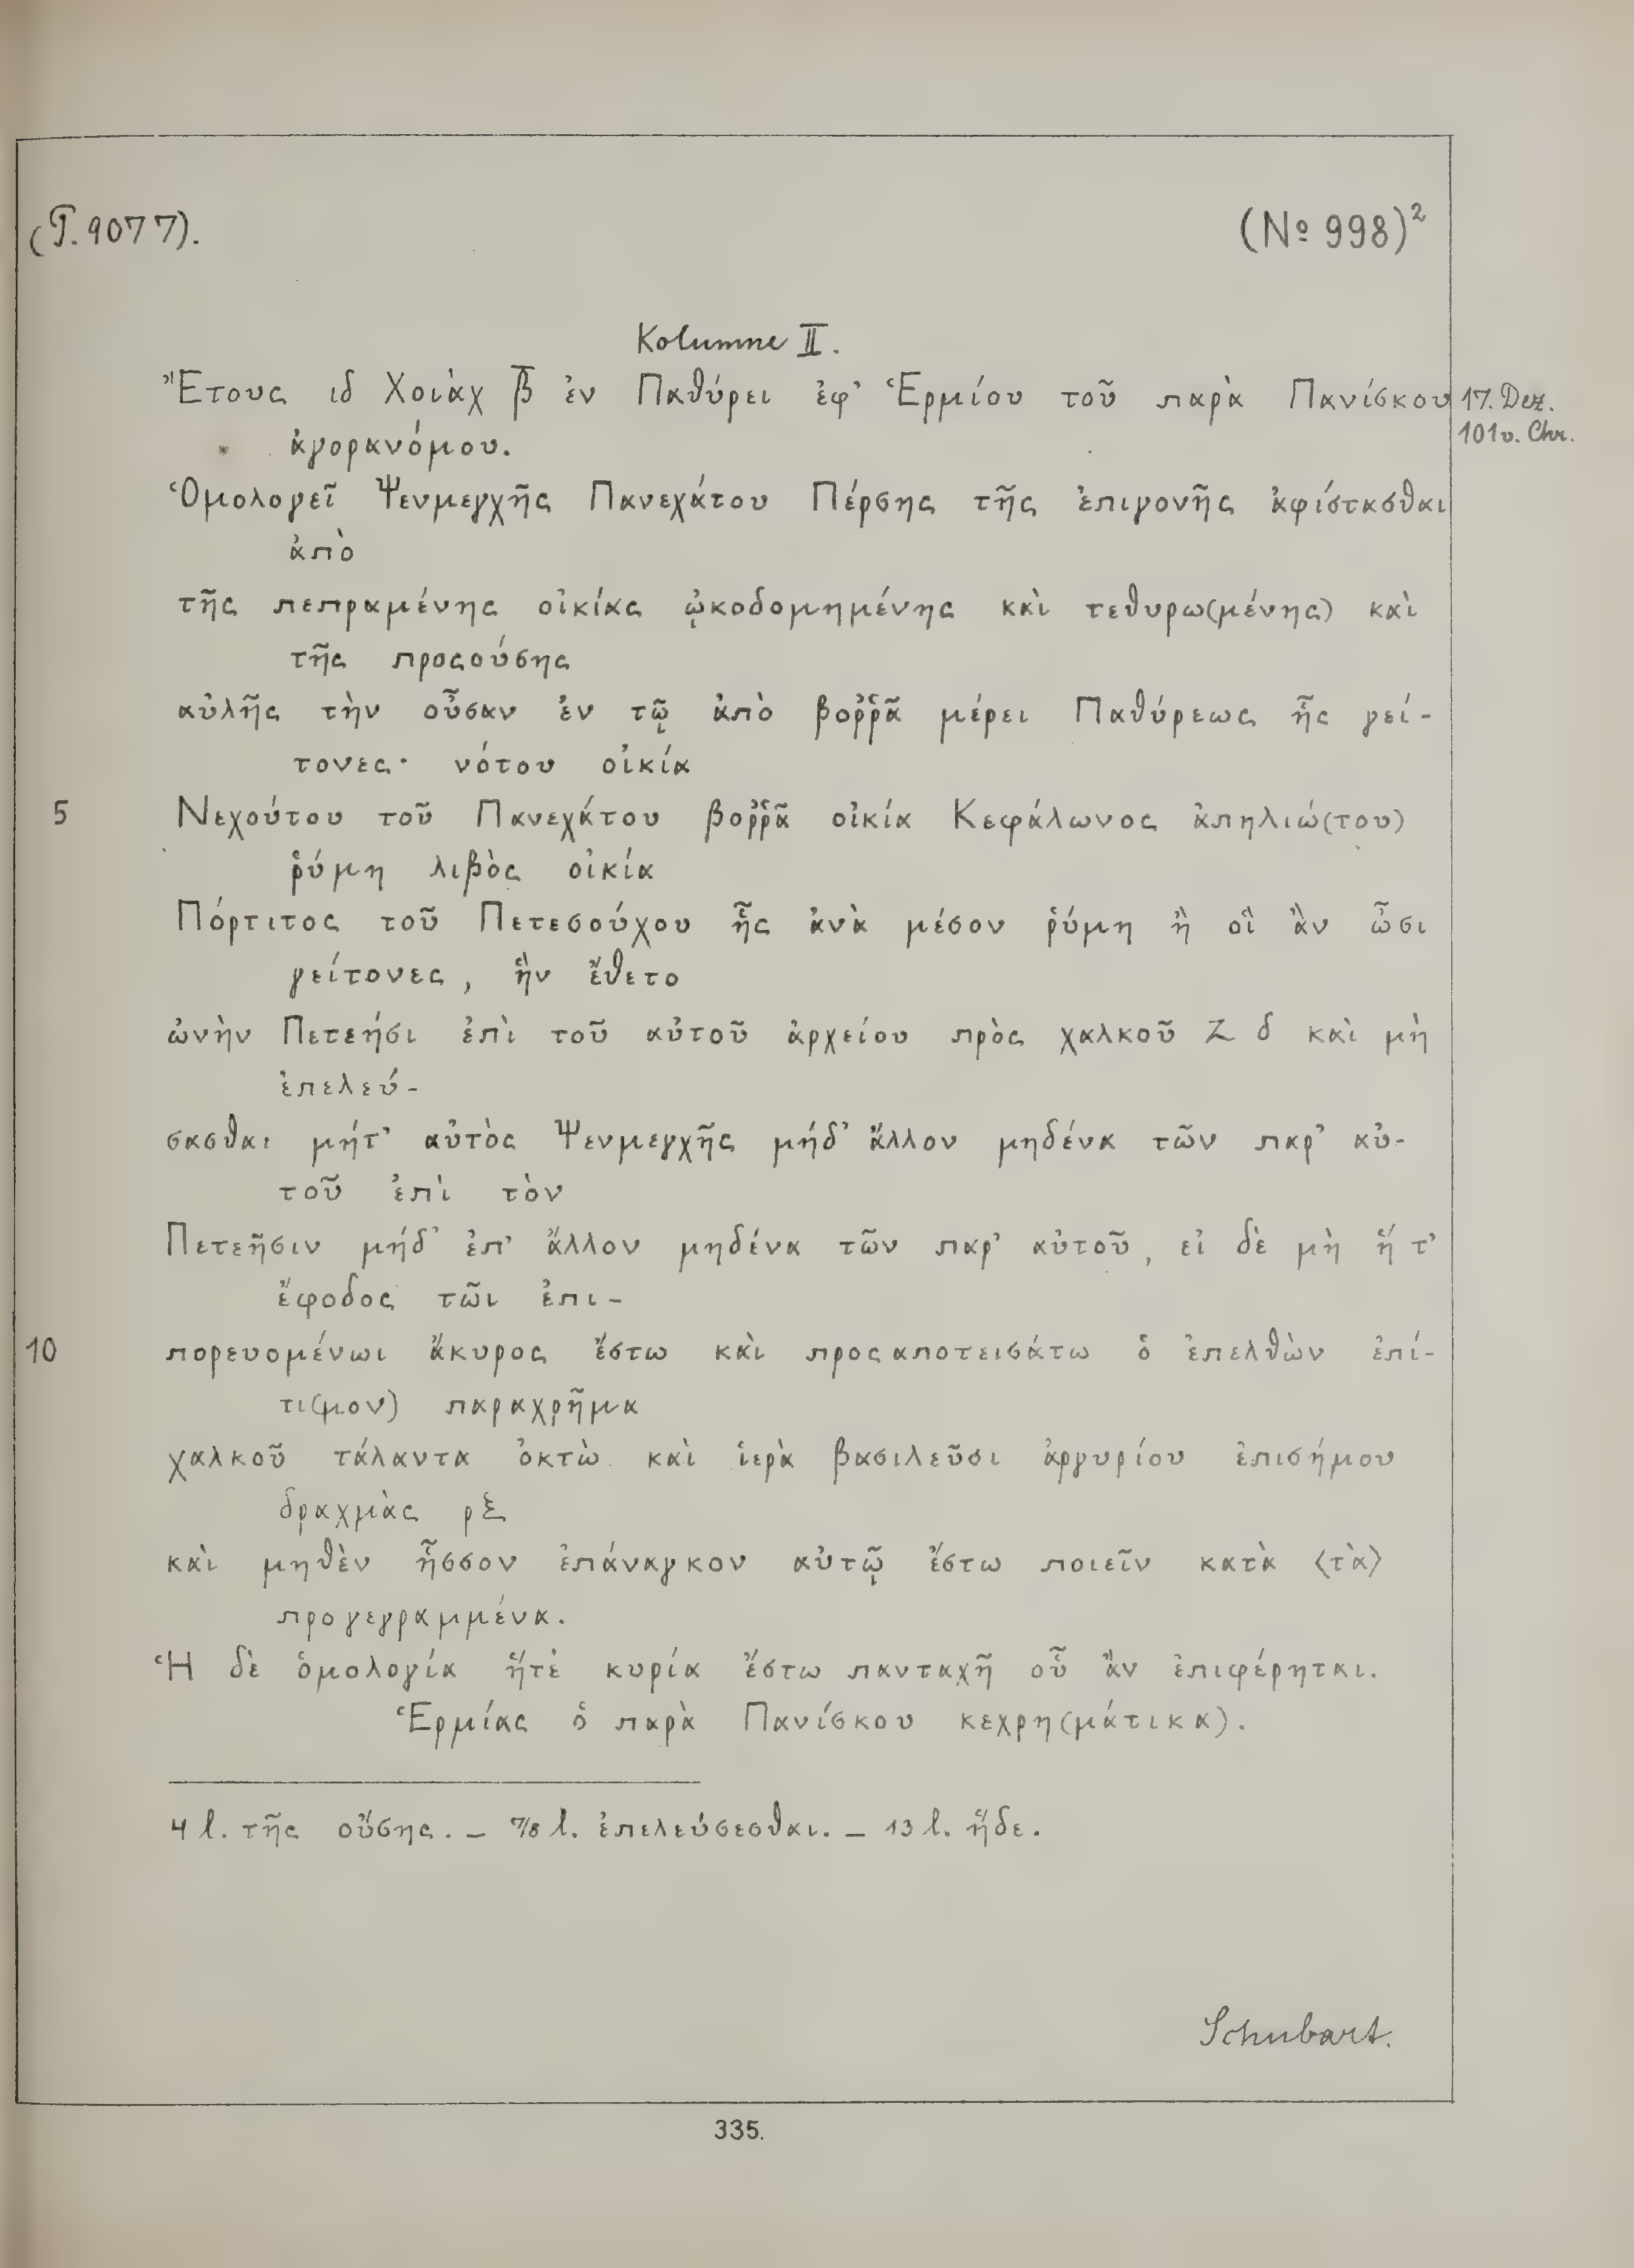 (P. 9077).
(No 998)²
Kolumne II.
Ἔτους ιδ Χοιὰχ β̅ ἐν Παθύρει ἐφ' Ἑρμίου τοῦ παρὰ Πανίσκου 17. Dez.
ἀγορανόμου. 101 v. Chr.
Ὁμολογεῖ Ψενμεγχῆς Πανεχάτου Πέρσης τῆς ἐπιγονῆς ἀφίστασθαι
ἀπὸ
τῆς πεπραμένης οἰκίας ᾠκοδομημένης καὶ τεθυρω(μένης) καὶ
τῆς προςούσης
αὐλῆς τὴν οὖσαν ἐν τῷ ἀπὸ βοῤῥᾶ μέρει Παθύρεως ἧς γεί-
τονες· νότου οἰκία
5 Νεχούτου τοῦ Πανεχάτου βοῤῥᾶ οἰκία Κεφάλωνος ἀπηλιώ(του)
ῥύμη λιβὸς οἰκία
Πόρτιτος τοῦ Πετεσούχου ἧς ἀνὰ μέσον ῥύμη ἢ οἳ ἂν ὦσι
γείτονες, ἣν ἔθετο
ὠνὴν Πετεήσι ἐπὶ τοῦ αὐτοῦ ἀρχείου πρὸς χαλκοῦ Ζ δ καὶ μὴ
ἐπελεύ-
σασθαι μήτ' αὐτὸς Ψενμεγχῆς μήδ' ἄλλον μηδένα τῶν παρ' αὐ-
τοῦ ἐπὶ τὸν
Πετεῆσιν μήδ' ἐπ' ἄλλον μηδένα τῶν παρ' αὐτοῦ, εἰ δὲ μὴ ἥ τ'
ἔφοδος τῶι ἐπι-
10 πορευομένωι ἄκυρος ἔστω καὶ προςαποτεισάτω ὁ ἐπελθὼν ἐπί-
τι(μον) παραχρῆμα
χαλκοῦ τάλαντα ὀκτὼ καὶ ἱερὰ βασιλεῦσι ἀργυρίου ἐπισήμου
δραχμὰς ρξ
καὶ μηθὲν ἧσσον ἐπάναγκον αὐτῷ ἔστω ποιεῖν κατὰ ⟨τὰ⟩
προγεγραμμένα.
Ἡ δὲ ὁμολογία ἥτὲ κυρία ἔστω πανταχῆ οὗ ἂν ἐπιφέρηται.
Ἑρμίας ὁ παρὰ Πανίσκου κεχρη(μάτικα).
4 l. τῆς οὔσης. – 7/8 l. ἐπελεύσεσθαι. – 13 l. ἥδε.
Schubart.
335.